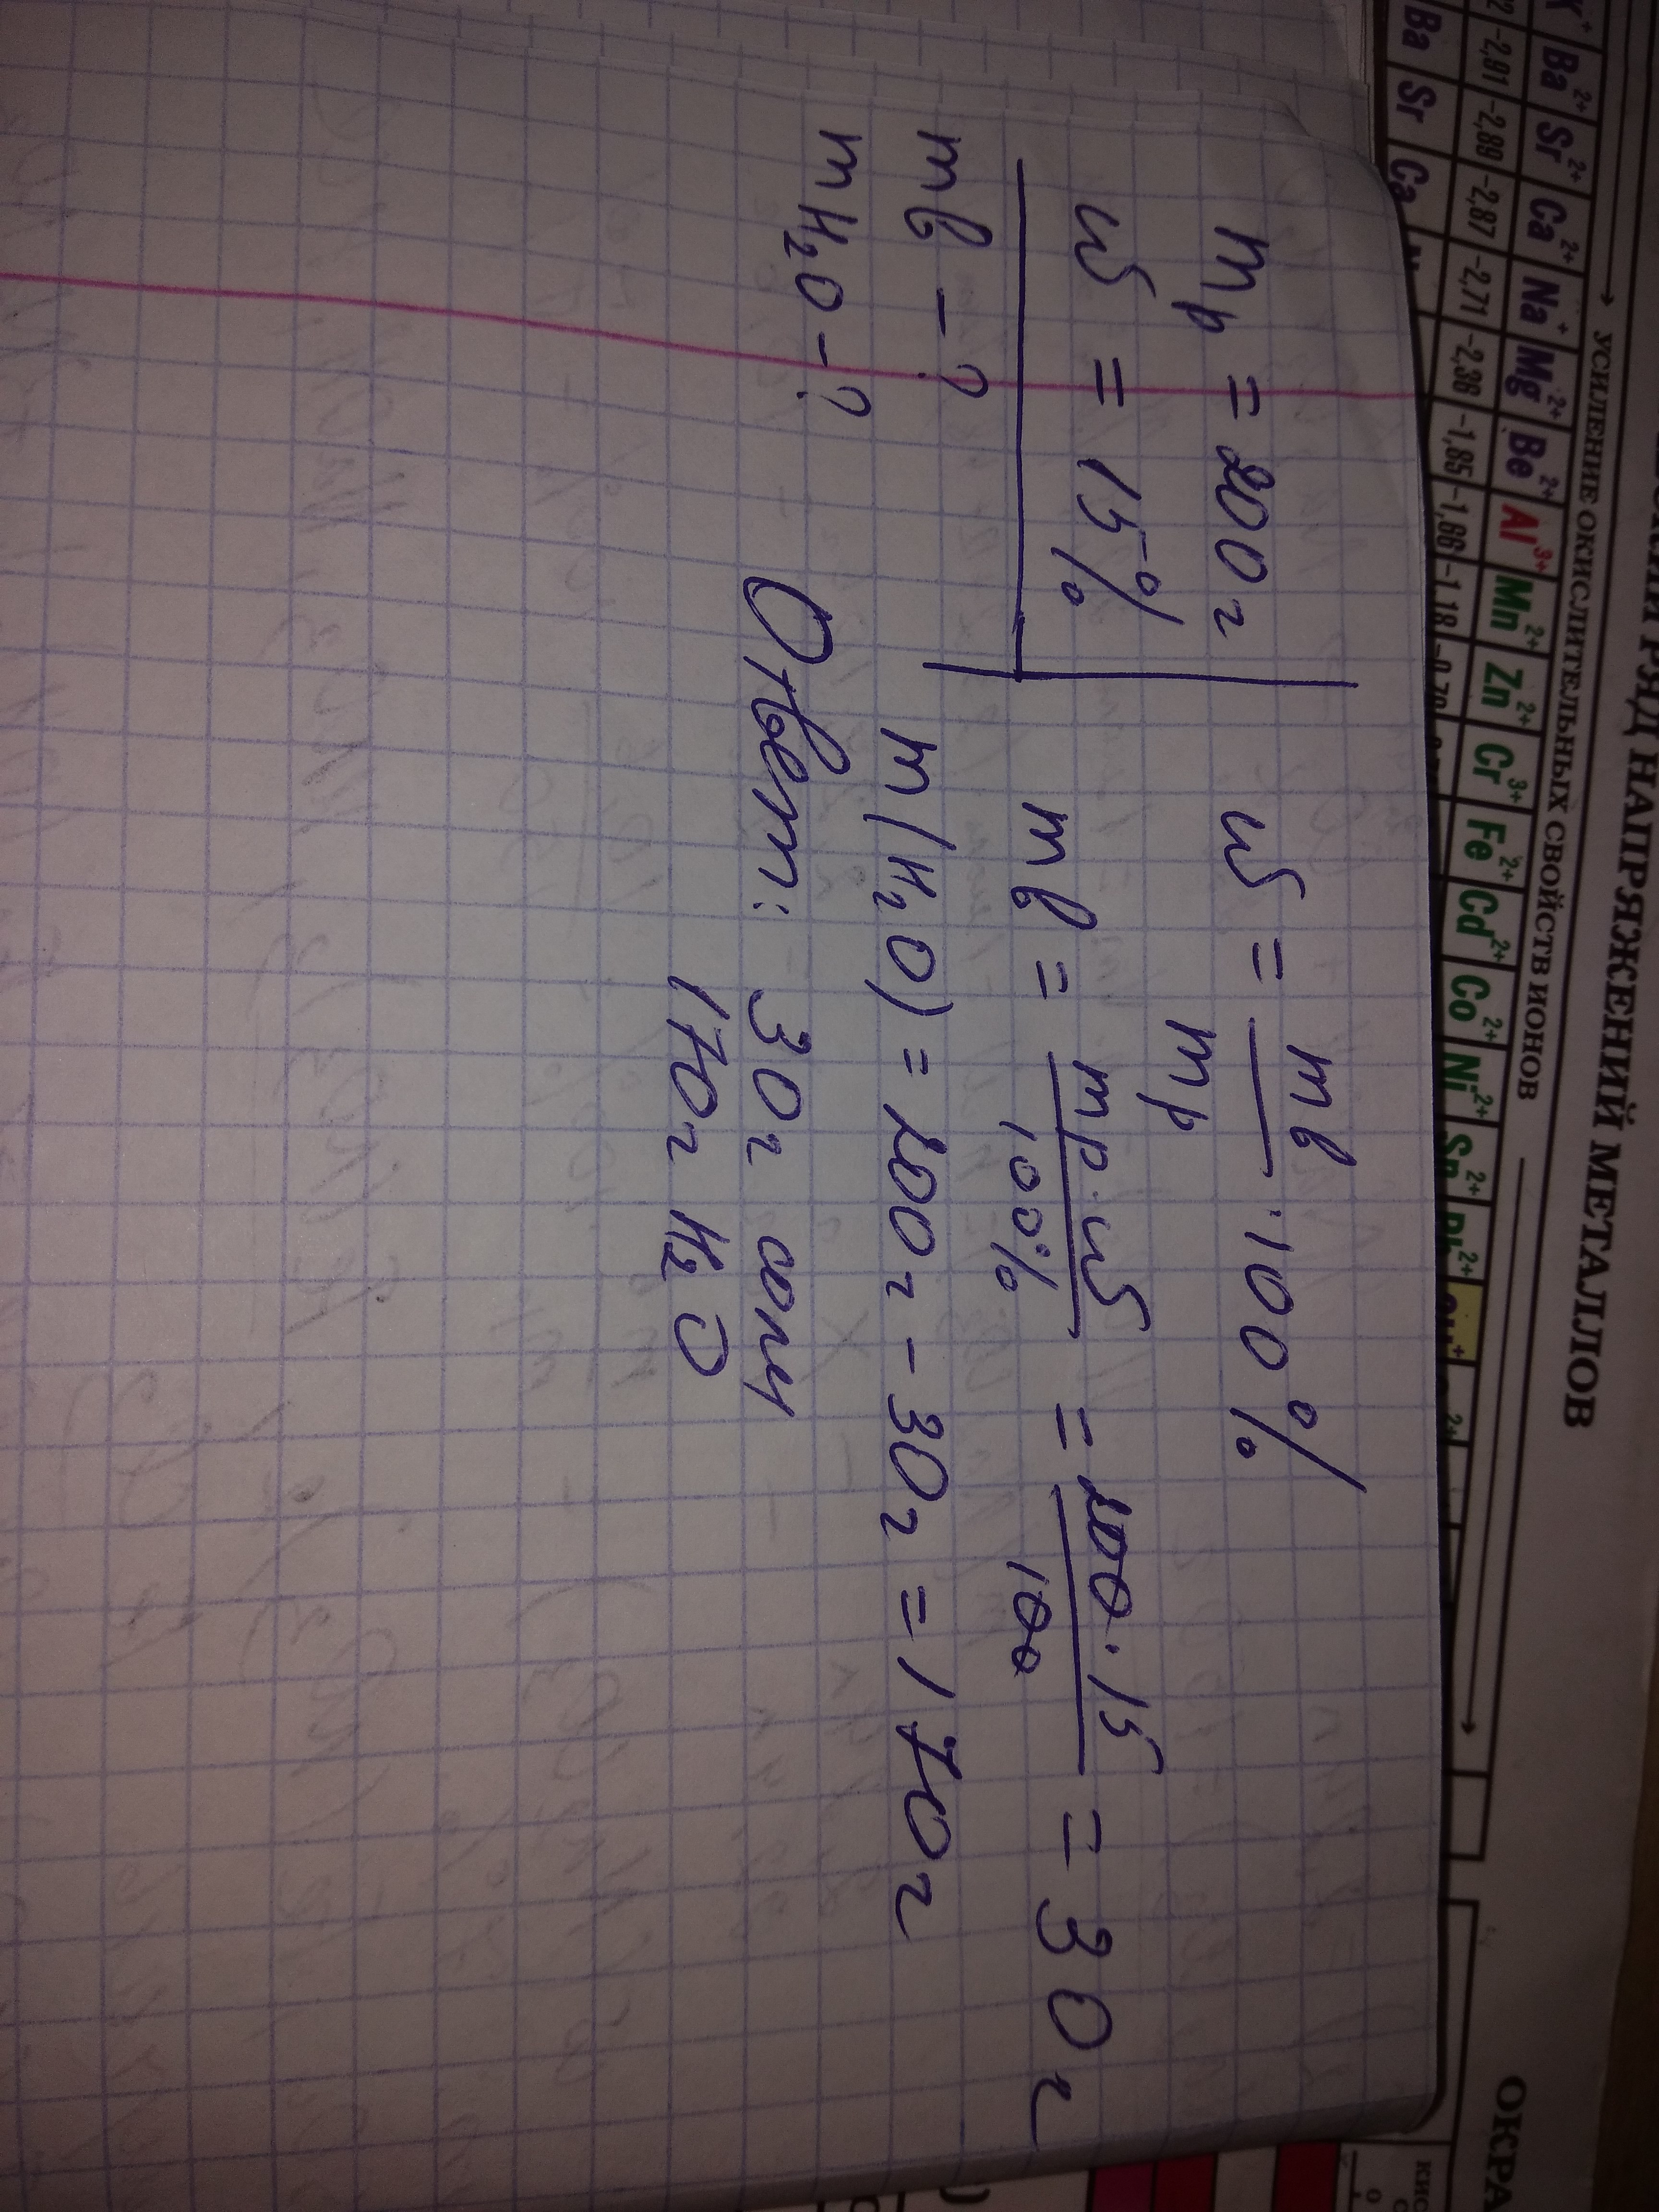 РЯД НАПРЯЖЕНИЙ МЕТАЛЛОВ
УСИЛЕНИЕ ОКИСЛИТЕЛЬНЫХ СВОЙСТВ ИОНОВ
K⁺ Ba²⁺ Sr²⁺ Ca²⁺ Na⁺ Mg²⁺ Be²⁺ Al³⁺ Mn²⁺ Zn²⁺ Cr³⁺ Fe²⁺ Cd²⁺ Co²⁺ Ni²⁺ Sn²⁺
-2,91 -2,89 -2,87 -2,71 -2,36 -1,85 -1,66 -1,18
Ba Sr Ca
ОКРА
mр = 200 г
ω = 15%
mв - ?
mH₂O - ?
ω = mв / mр · 100%
mв = mр · ω / 100% = 200 · 15 / 100 = 30 г
m(H₂O) = 200 г - 30 г = 170 г
Ответ: 30 г соли
170 г H₂O